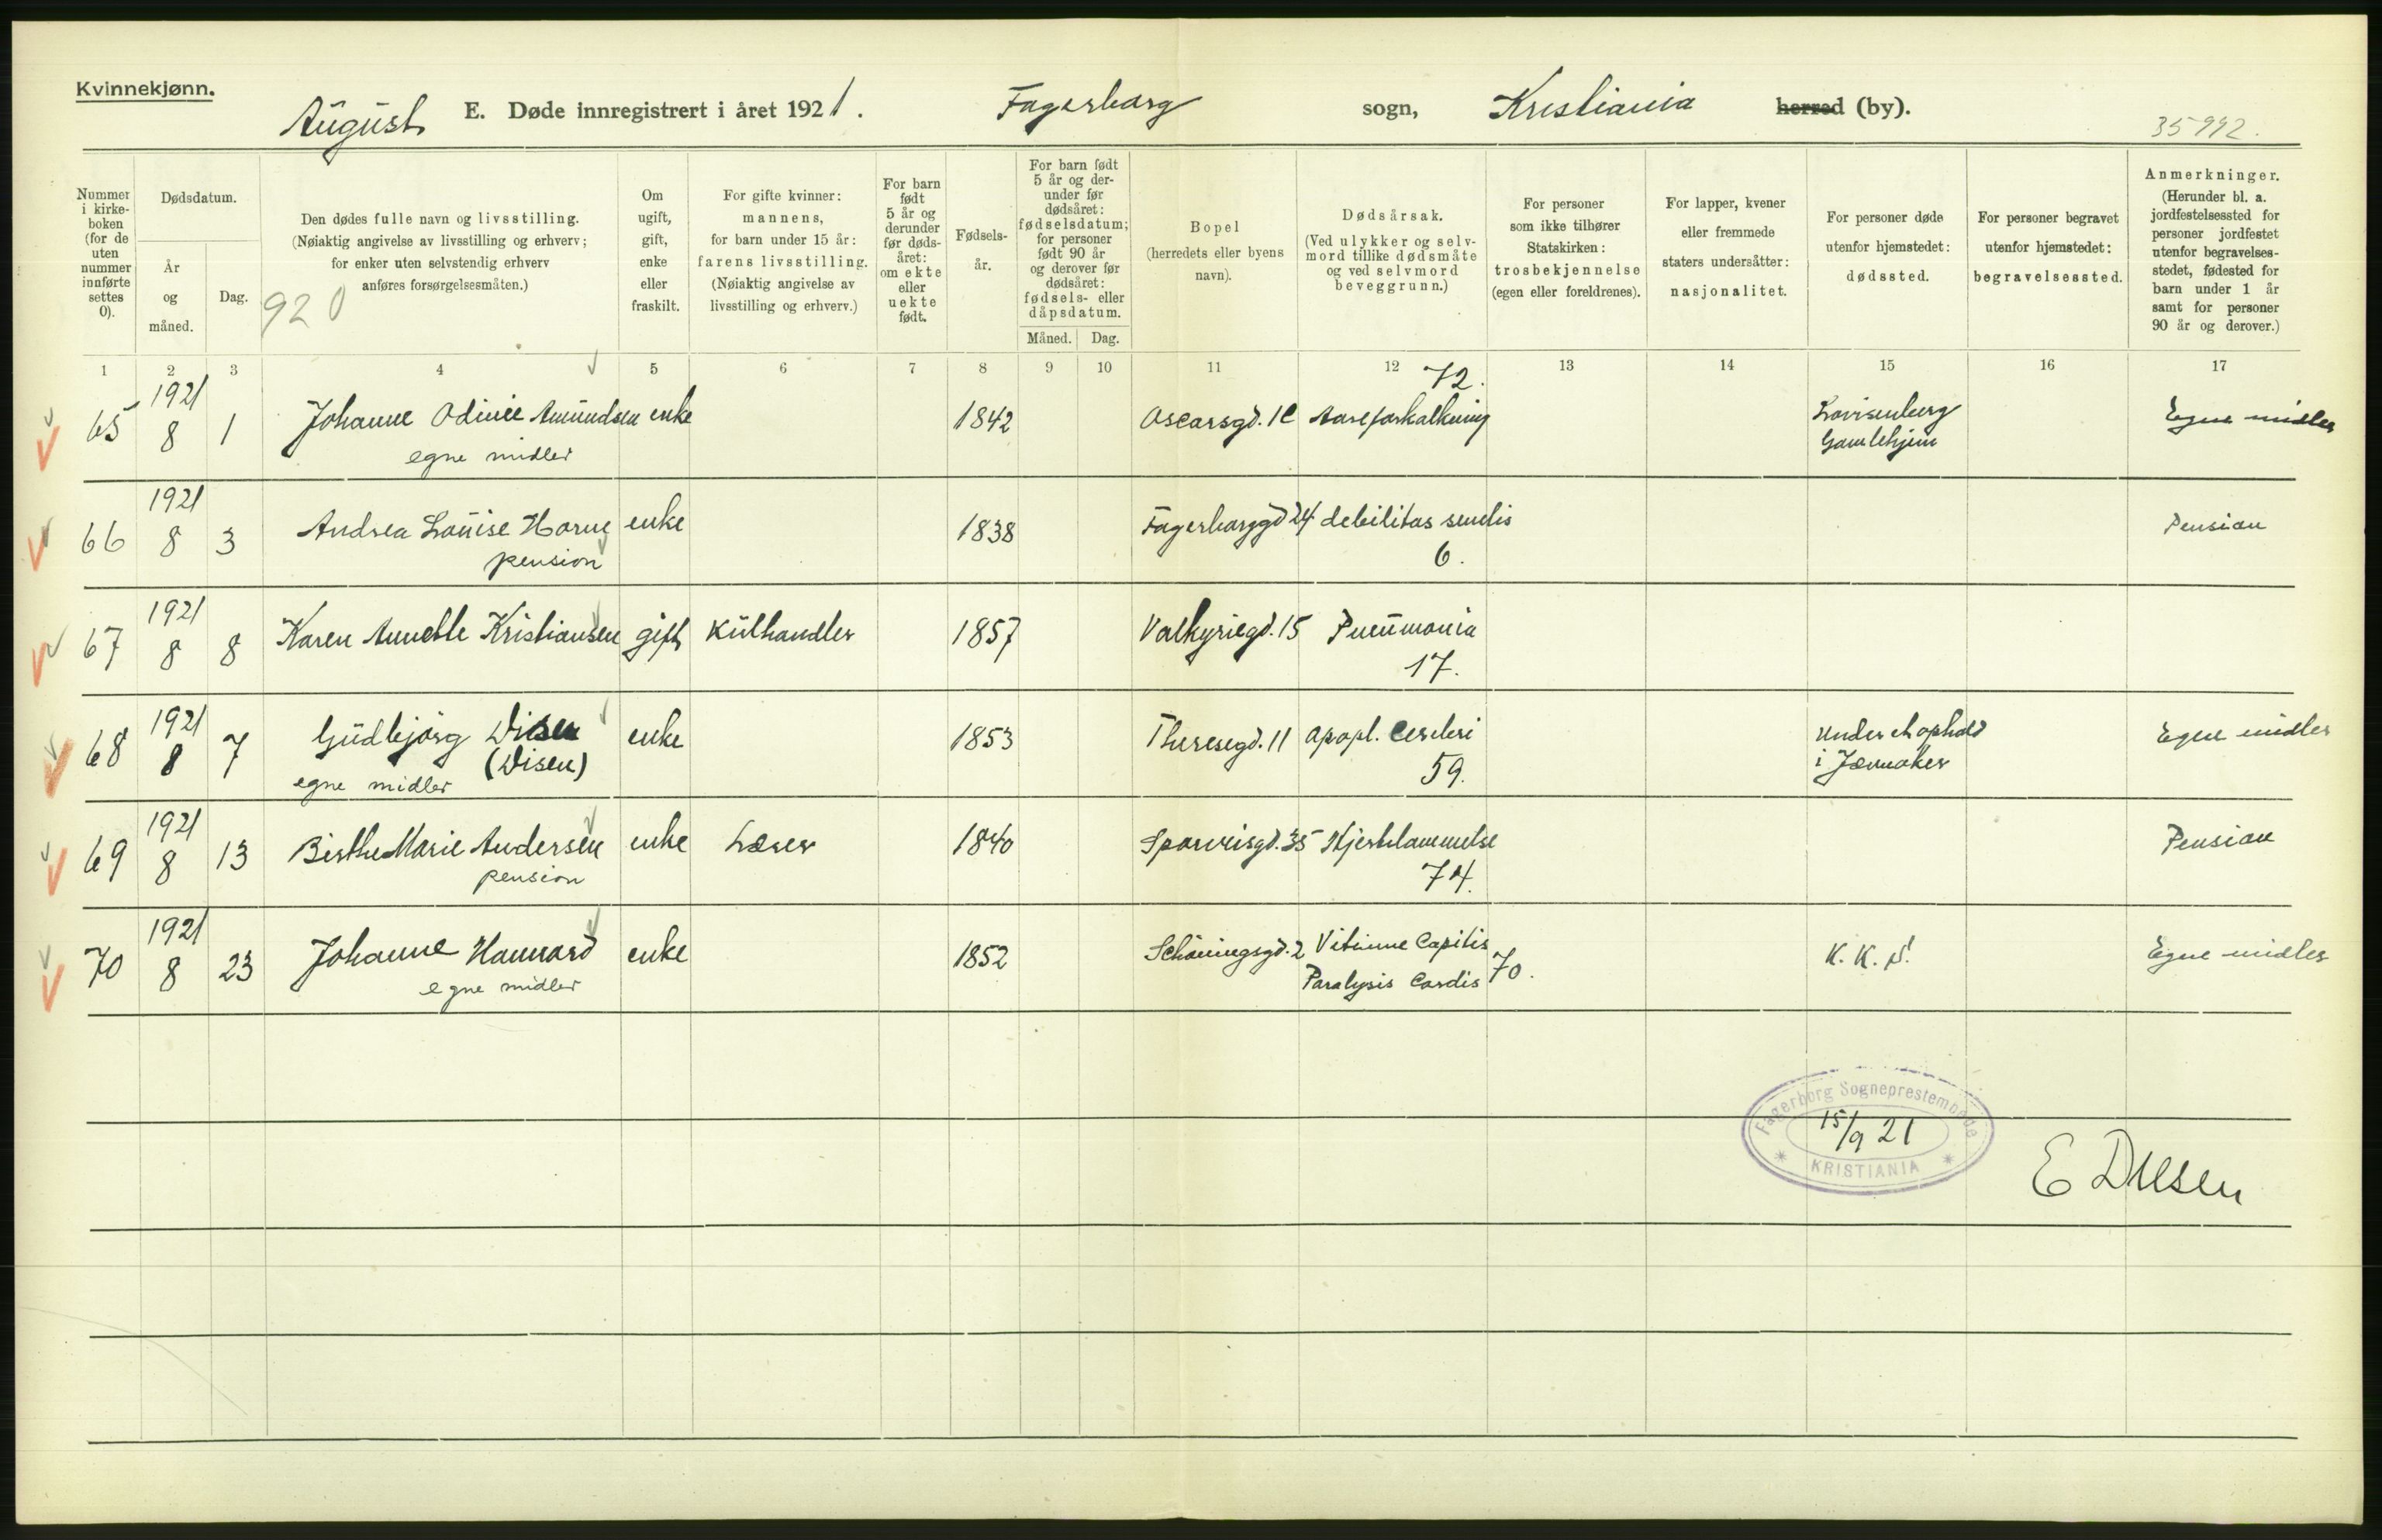 Kvinnekjønn.
August E. Døde innregistrert i året 1921. Fagerborg sogn, Kristiania herred (by).
35992.
Nummer i kirke-boken (for de uten nummer innførte settes 0).
Dødsdatum.
År og måned.
Dag.
Den dødes fulle navn og livsstilling.
(Nøiaktig angivelse av livsstilling og erhverv;
for enker uten selvstendig erhverv
anføres forsørgelsesmåten.)
920
Om ugift, gift, enke eller fraskilt.
For gifte kvinner: mannens, for barn under 15 år: farens livsstilling. (Nøiaktig angivelse av livsstilling og erhverv.)
For barn født 5 år og derunder før døds-året: om ekte eller uekte født.
Fødsels-år.
For barn født 5 år og der-under før dødsåret: fødselsdatum; for personer født 90 år og derover før dødsåret: fødsels- eller dåpsdatum.
Måned. Dag.
Bopel (herredets eller byens navn).
Dødsårsak. (Ved ulykker og selv-mord tillike dødsmåte og ved selvmord beveggrunn.)
For personer som ikke tilhører Statskirken: trosbekjennelse (egen eller foreldrenes).
For lapper, kvener eller fremmede staters undersåtter: nasjonalitet.
For personer døde utenfor hjemstedet: dødssted.
For personer begravet utenfor hjemstedet: begravelsessted.
Anmerkninger. (Herunder bl. a. jordfestelsessted for personer jordfestet utenfor begravelses-stedet, fødested for barn under 1 år samt for personer 90 år og derover.)
1 2 3 4 5 6 7 8 9 10 11 12 13 14 15 16 17
65 1921 8 1 Johanne Odinie Amundsen enke 1842 Oscarsgd. 1C Aareforkalkning 72. Lovisenberg Gamlehjem Egne midler
egne midler
66 1921 8 3 Andrea Louise Horne enke 1838 Fagerborggd 24 debilitas senilis 6. Pension
pension
67 1921 8 8 Karen Annette Kristiansen gift Kulhandler 1857 Valkyriegd. 15 Pneumonia 17.
68 1921 8 7 Gudbjørg Disen (Disen) enke 1853 Theresegd. 11 Apopl. Cerebri 59. Under et ophold i Jævnaker Egne midler
egne midler
69 1921 8 13 Birthe Marie Andersen enke Læser 1840 Sporveisgd. 35 Hjertelammelse 74. Pension
pension
70 1921 8 23 Johanne Hannard enke 1852 Schøningsgd. 2 Vitinme Capitis Paralysis Cordis 70. K. K. S! Egne midler
egne midler
Fagerborg Sogneprestembede
15/9 21
KRISTIANIA